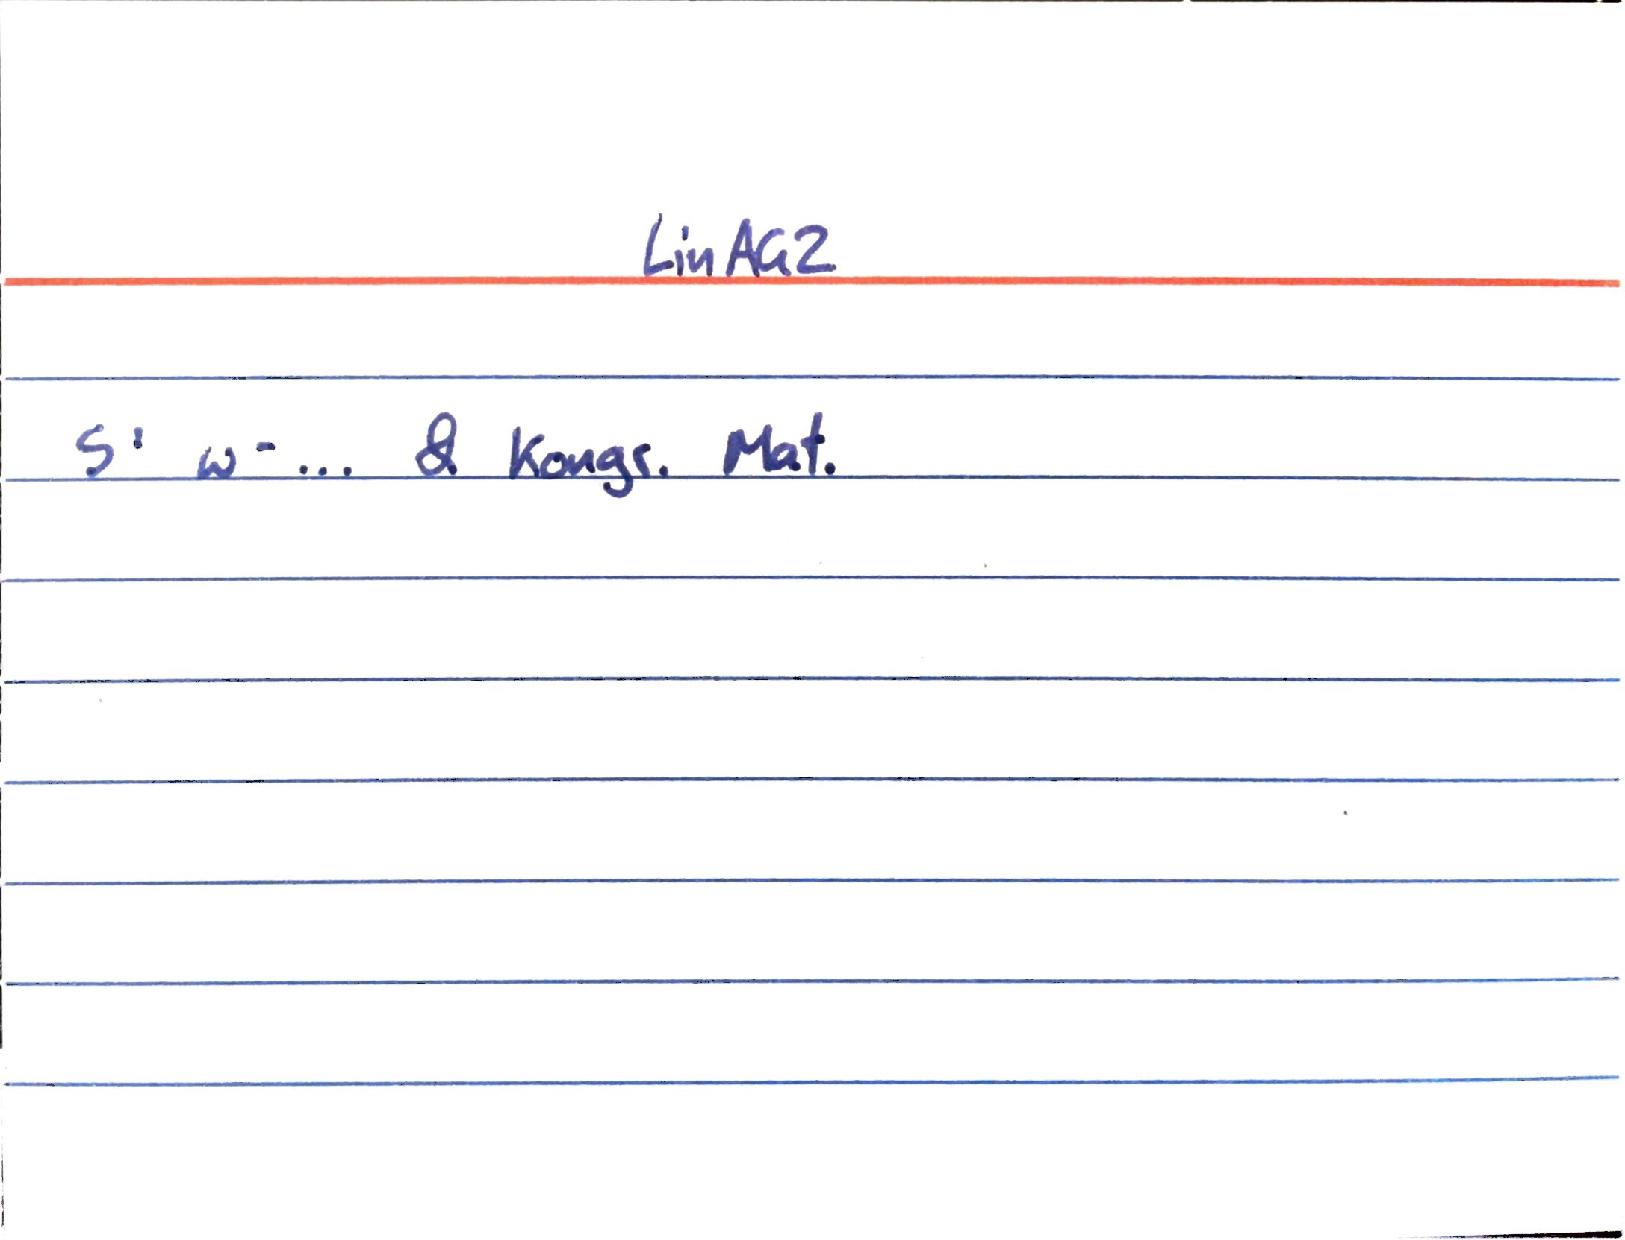 LinAG2
S: w-... & Kongr. Mat.